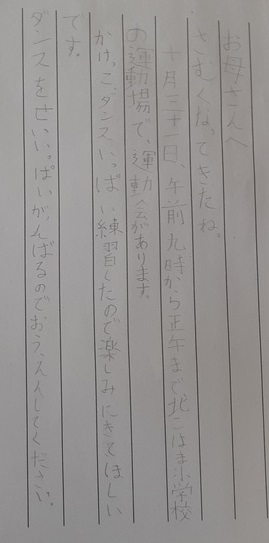 お母さんへ
さむくなってきたね。
十月二十一日、午前九時から正午まで北こはま小学校
の運動場で、運動会があります。
かけっこダンス、いっぱい練習したので楽しみにきてほしい
です。
ダンスをせいいっぱいがんばるのでおうえんしてください。